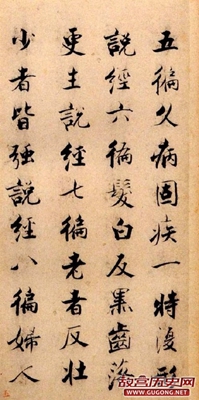 五徧久病固疾一時復形
說經六徧髮白反黑齒落
更生說經七徧老者反壯
少者皆強說經八徧婦人
故宫历史网
www.GUGONG.net